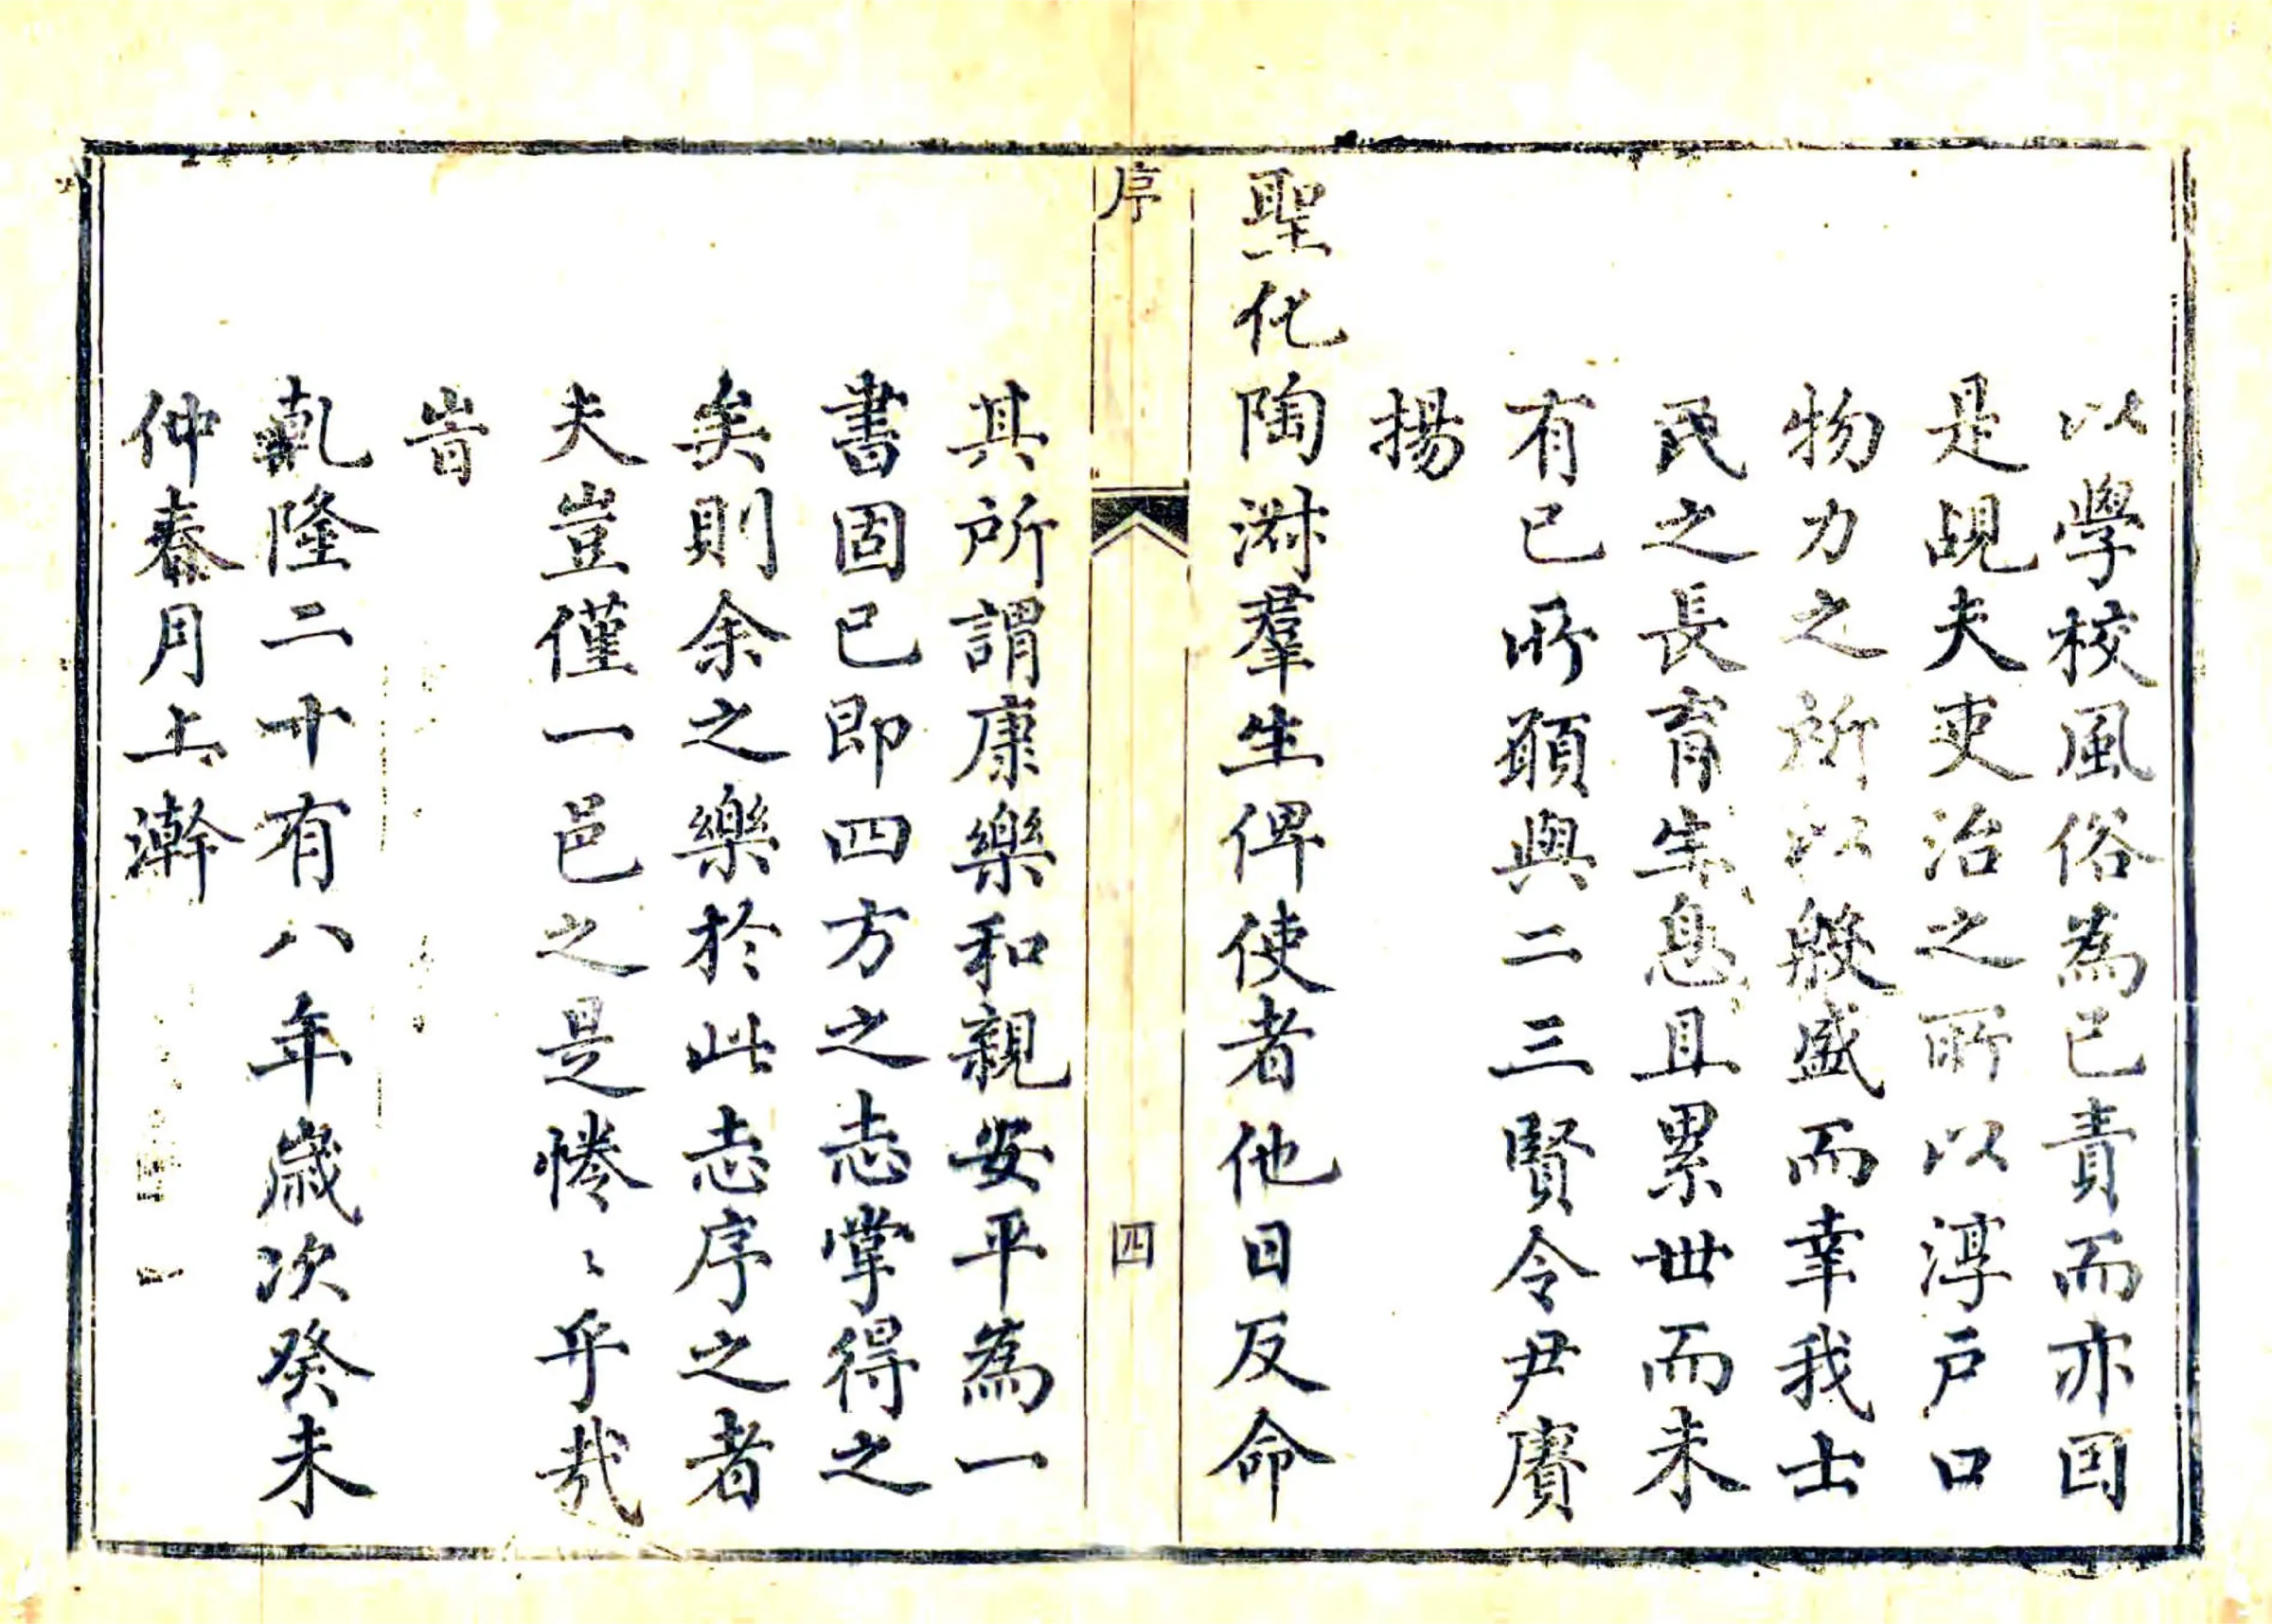 以學校風俗為已責而亦因
是覘夫吏治之所以淳戶口
物力之所以殷盛而幸我士
民之長育生息且累世而未
有已所願與二三賢令尹賡
揚
聖化陶淑羣生俾使者他日反命
序
四
其所謂康樂和親安平為一
書固已即四方之志掌得之
矣則余之樂於此志序之者
夫豈僅一邑之是惓〻乎哉
旹
乹隆二十有八年歲次癸未
仲春月上澣